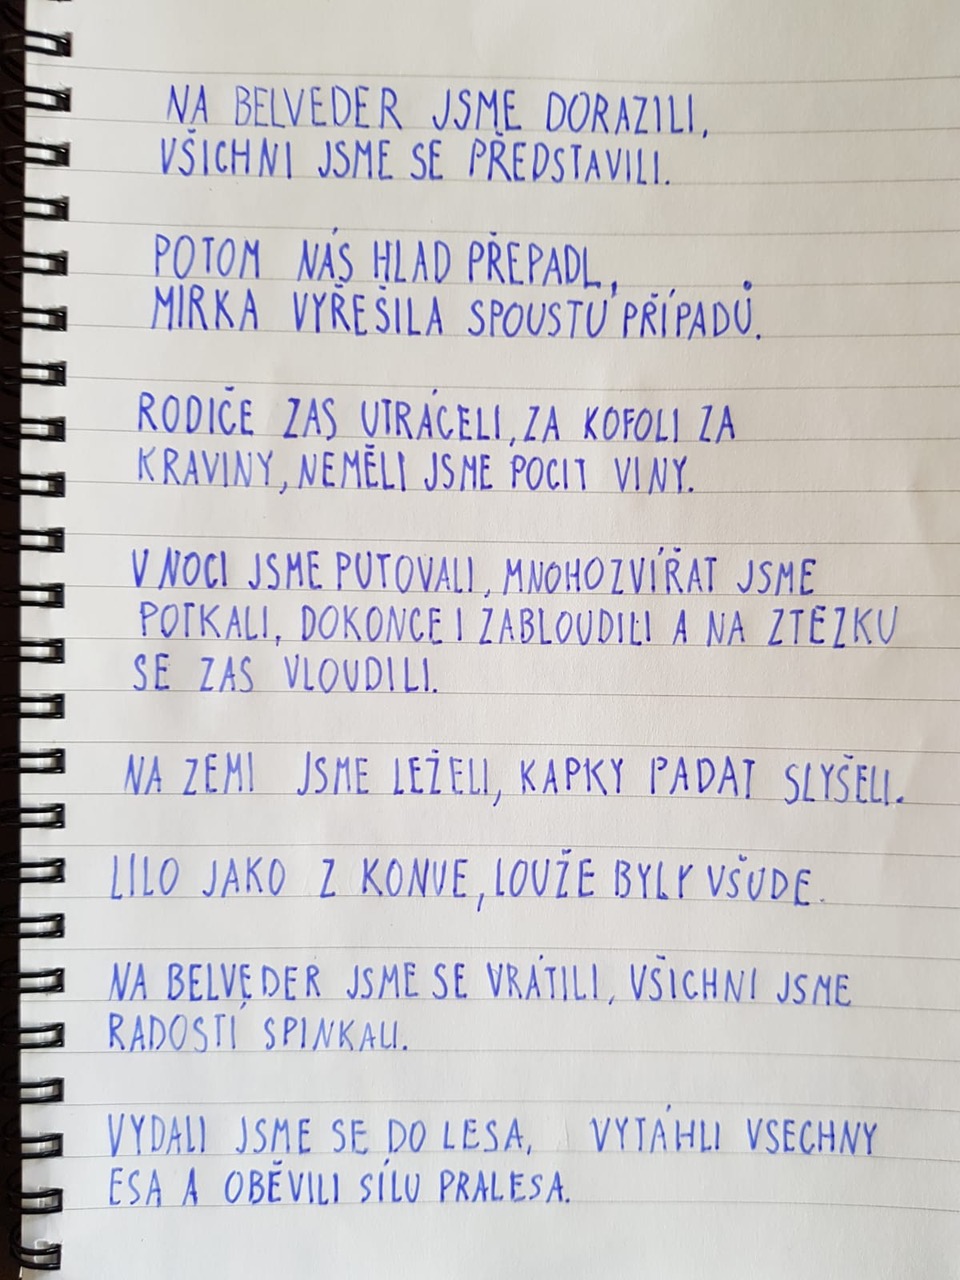 NA BELVEDER JSME DORAZILI,
VŠICHNI JSME SE PŘEDSTAVILI.
POTOM NÁS HLAD PŘEPADL,
MIRKA VYŘEŠILA SPOUSTU PŘÍPADŮ.
RODIČE ZAS UTRÁCELI, ZA KOFOLI ZA
KRAVINY, NEMĚLI JSME POCIT VINY.
V NOCI JSME PUTOVALI, MNOHOZVÍŘAT JSME
POTKALI, DOKONCE I ZABLOUDILI A NA ZTEZKU
SE ZAS VLOUDILI.
NA ZEMI JSME LEŽELI, KAPKY PADAT SLYŠELI.
LILO JAKO Z KONVE, LOUŽE BYLY VŠUDE.
NA BELVEDER JSME SE VRÁTILI, VŠICHNI JSME
RADOSTÍ SPINKALI.
VYDALI JSME SE DO LESA, VYTÁHLI VSECHNY
ESA A OBĚVILI SÍLU PRALESA.